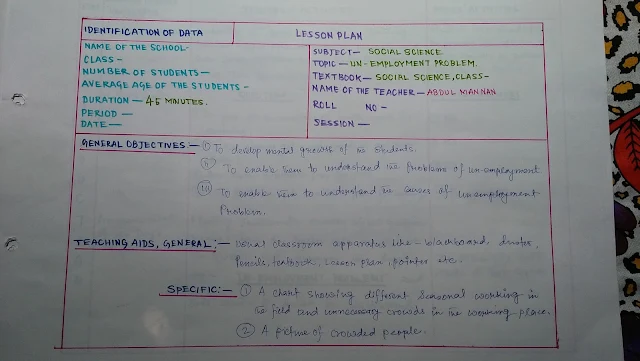 IDENTIFICATION OF DATA
LESSON PLAN
NAME OF THE SCHOOL-
CLASS -
NUMBER OF STUDENTS —
AVERAGE AGE OF THE STUDENTS -
DURATION — 45 MINUTES.
PERIOD —
DATE —
SUBJECT — SOCIAL SCIENCE
TOPIC — UN-EMPLOYMENT PROBLEM.
TEXTBOOK — SOCIAL SCIENCE, CLASS-
NAME OF THE TEACHER — ABDUL MANNAN
ROLL NO —
SESSION —
GENERAL OBJECTIVES — (i) To develop mental growth of the students.
(ii) To enable them to understand the Problems of un-employment
(iii) To enable them to understand the causes of unemployment
Problem.
TEACHING AIDS, GENERAL:— usual classroom apparatus like - blackboard, duster,
Pencils, textbook, Lesson plan, pointer etc.
SPECIFIC:— (1) A chart showing different seasonal working in
the field and unnecessary crowds in the working place.
(2) A picture of crowded people.